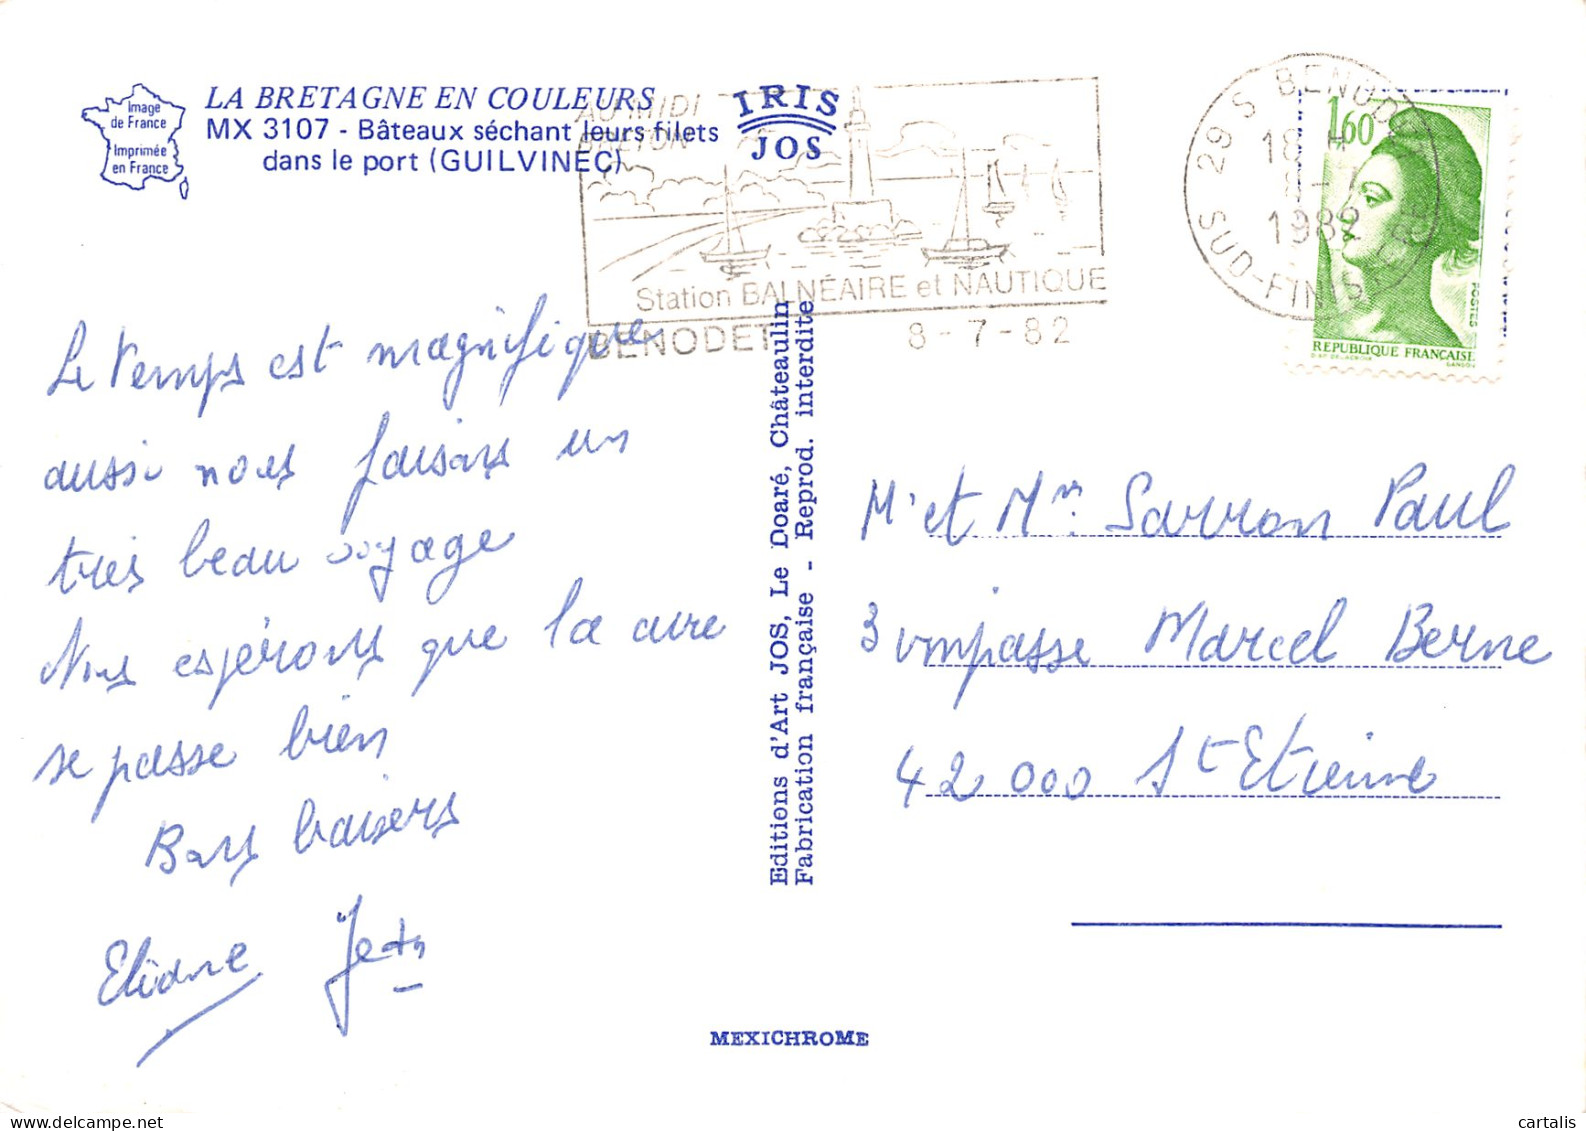 Image
de France
Imprimée
en France
LA BRETAGNE EN COULEURS
MX 3107 - Bâteaux séchant leurs filets
dans le port (GUILVINEC)
IRIS
JOS
AU MIDI
BRETON
Station BALNÉAIRE et NAUTIQUE
BENODET 8-7-82
29 S BENODET
18 H
8-7
1982
SUD-FINISTERE
1,60
POSTES
REPUBLIQUE FRANÇAISE
D'AP. DELACROIX GANDON
Le temps est magnifique
aussi nous faisons un
très beau voyage
Nous espérons que la cure
se passe bien
Bons baisers
Eliane Jean
Editions d'Art JOS, Le Doaré, Châteaulin
Fabrication française - Reprod. interdite
Mr et Mme Sarron Paul
3 impasse Marcel Berne
42000 St Etienne
MEXICHROME
cartalis